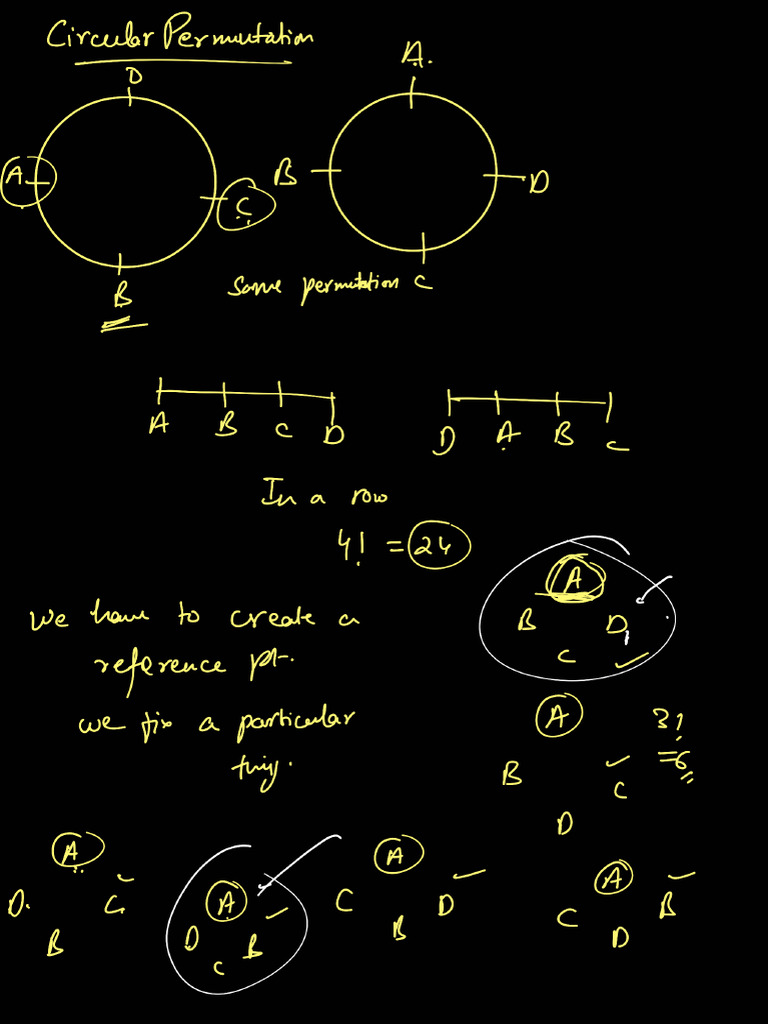 Circular Permutation
D
A C
B
A.
B D
C
Same permutation
A B C D
D A B C
In a row
4! = 24
We have to create a
reference pt.
we fix a particular
A
B D,
C
A
B C
D
3!
=6
A
D. C
B
A
D B
C
A
C D
B
A
C B
D